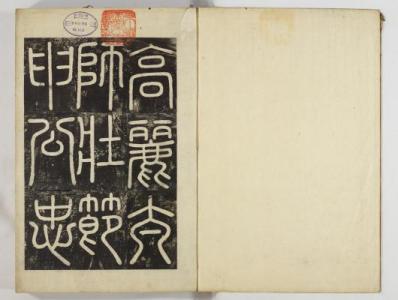 高麗太
師壯節
申公忠